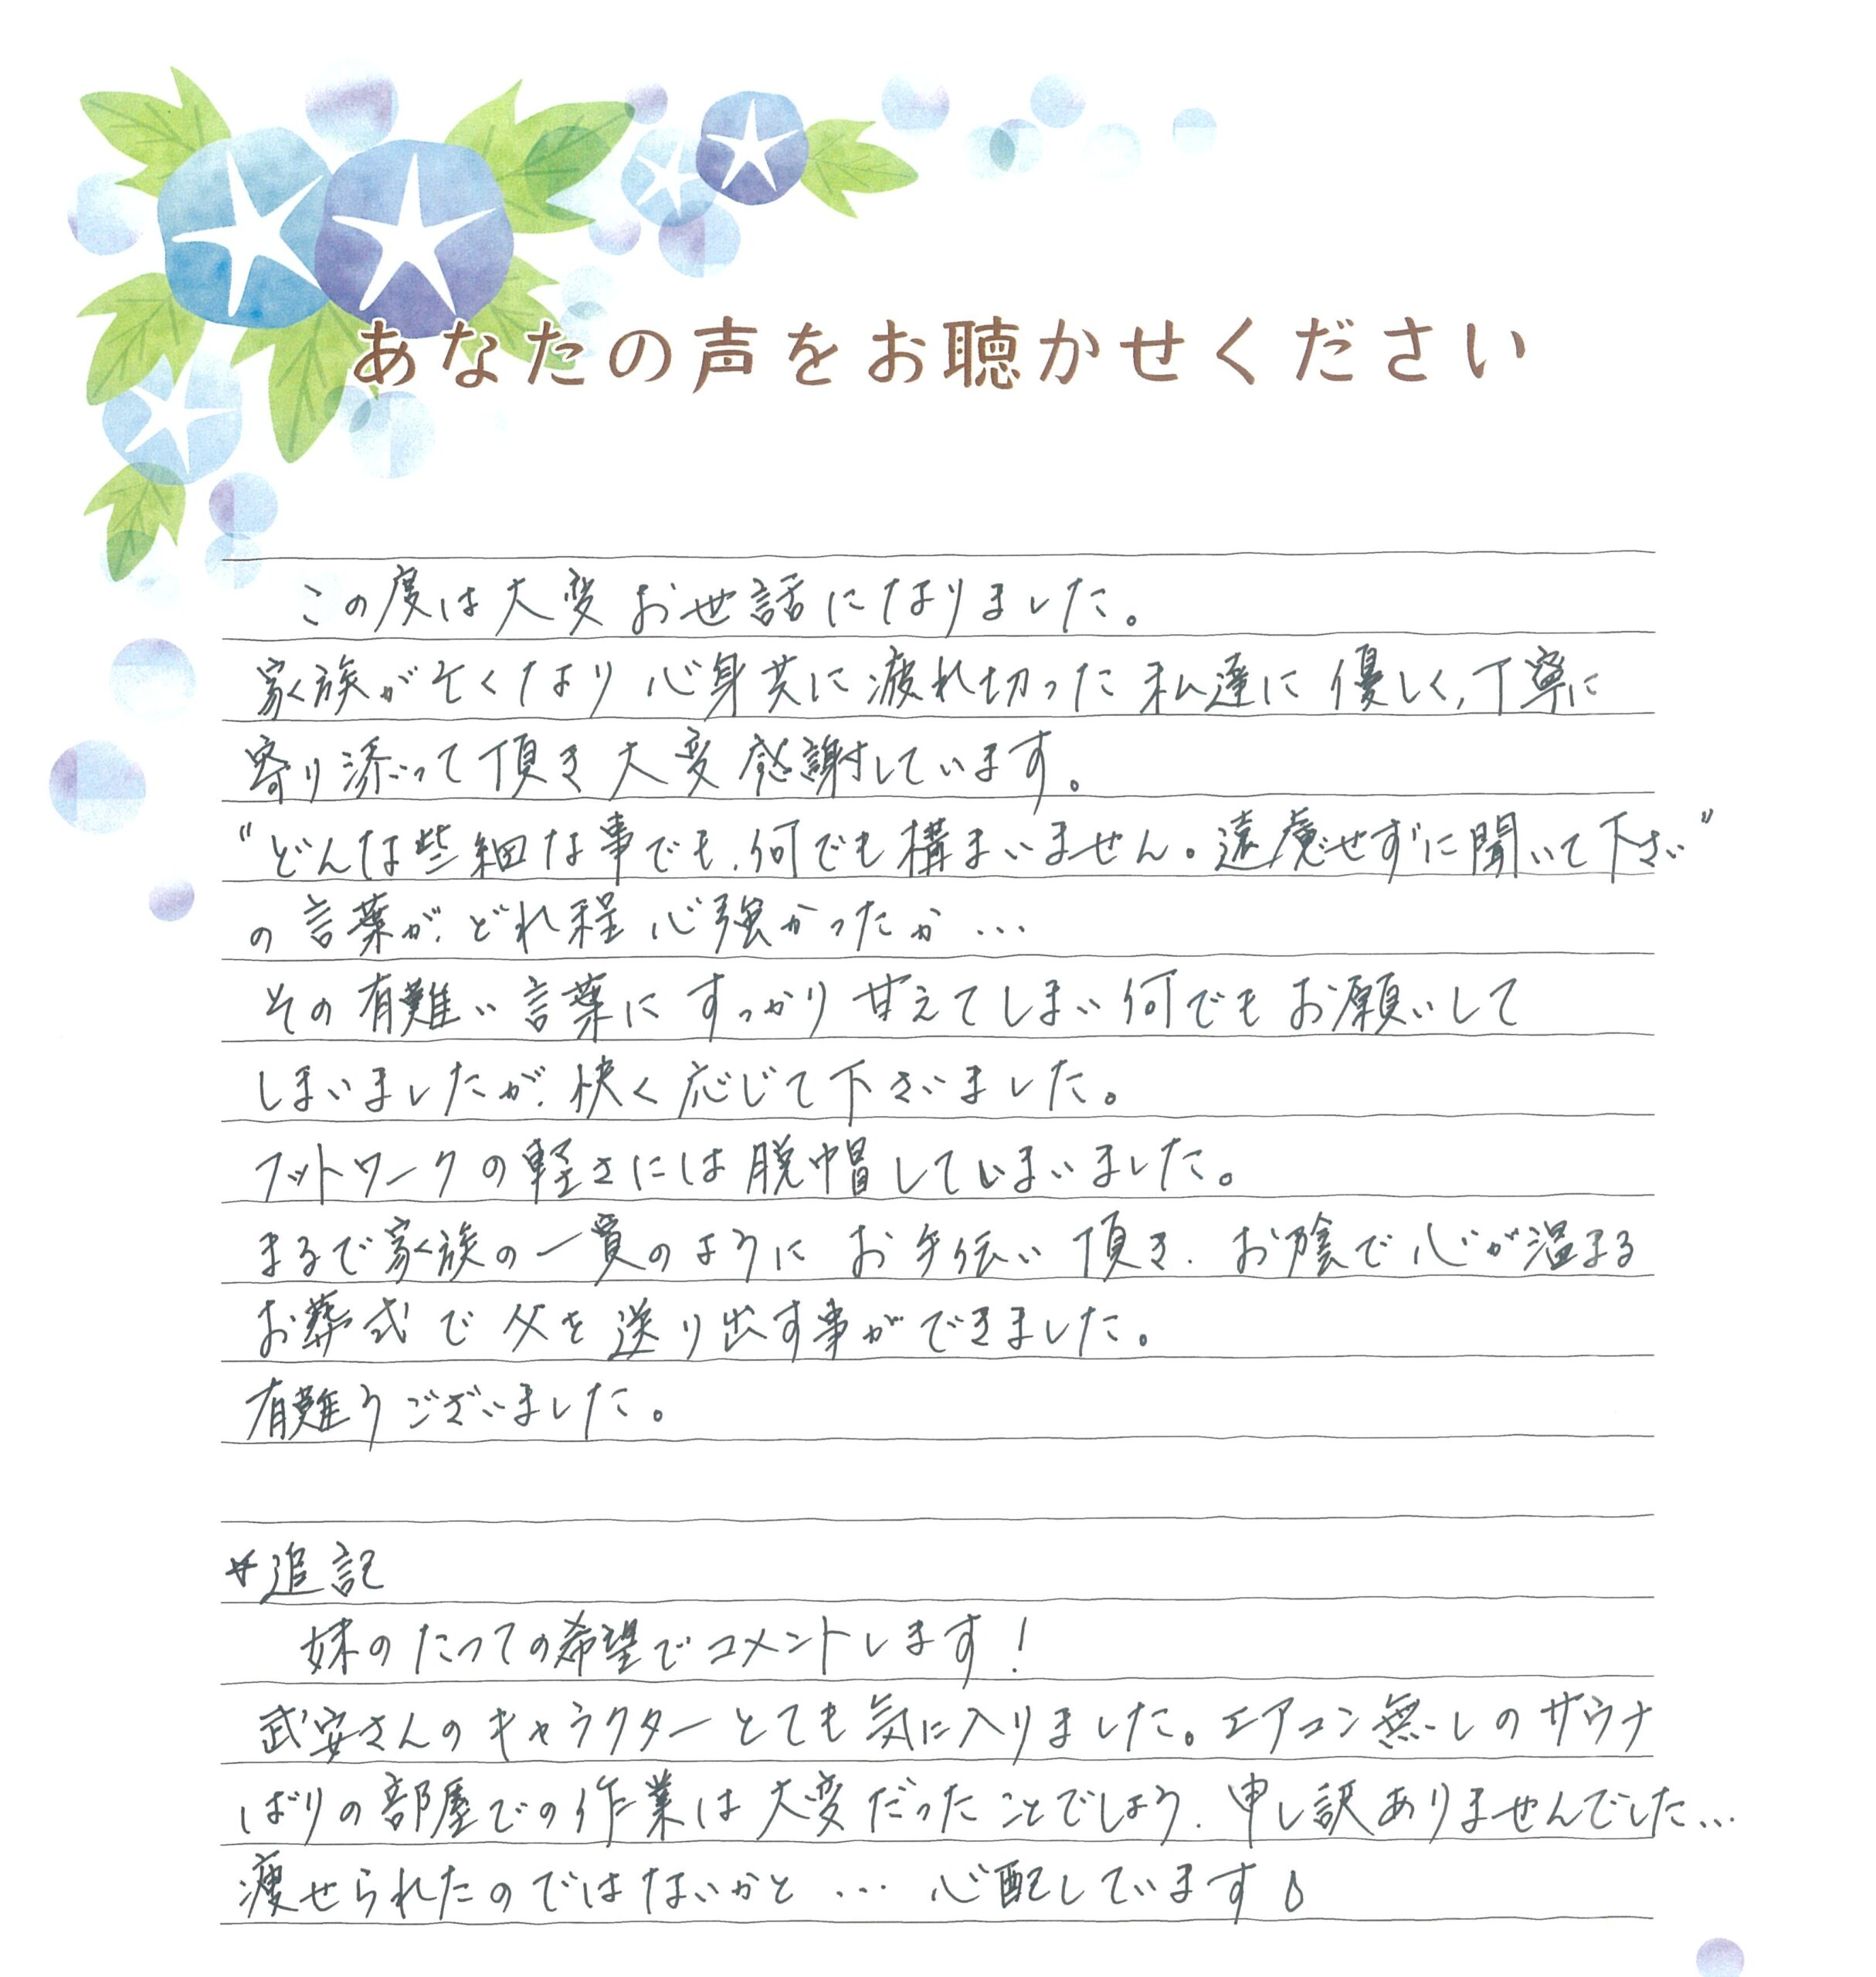 あなたの声をお聴かせください
この度は大変お世話になりました。
家族が亡くなり心身共に疲れ切った私達に優しく、丁寧に
寄り添って頂き大変感謝しています。
"どんな些細な事でも、何でも構まいません。遠慮せずに聞いて下さい"
の言葉が、どれ程心強かったか…
その有難い言葉にすっかり甘えてしまい何でもお願いして
しまいましたが、快く応じて下さいました。
フットワークの軽さには脱帽してしまいました。
まるで家族の一員のようにお手伝い頂き、お陰で心が温まる
お葬式で父を送り出す事ができました。
有難うございました。
*追記
妹のたっての希望でコメントします!
武安さんのキャラクターとても気に入りました。エアコン無しのサウナ
ばりの部屋での作業は大変だったことでしょう、申し訳ありませんでした…
痩せられたのではないかと…心配しています